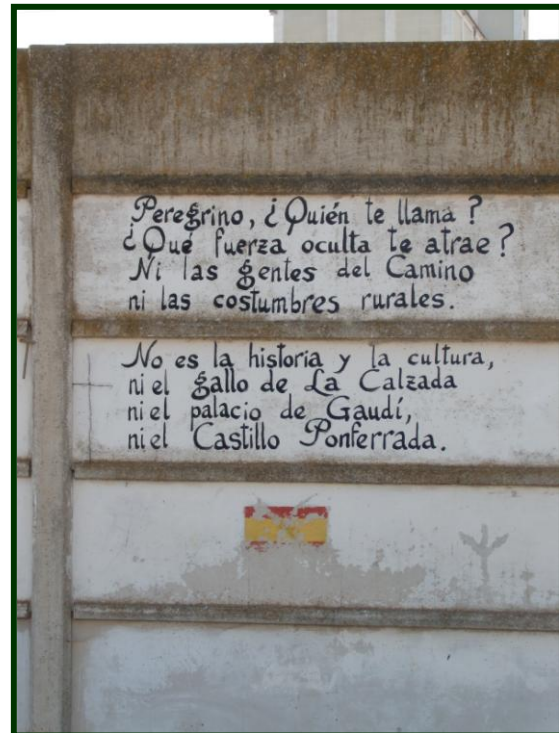 Peregrino, ¿Quién te llama?
¿Qué fuerza oculta te atrae?
Ni las gentes del Camino
ni las costumbres rurales.
No es la historia y la cultura,
ni el gallo de La Calzada
ni el palacio de Gaudí,
ni el Castillo Ponferrada.